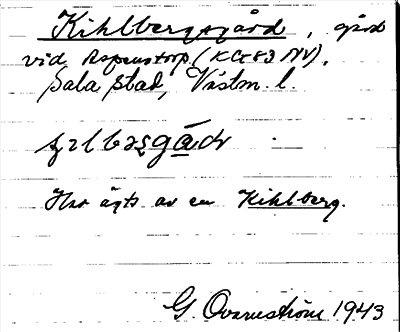 Kihlbergsgård, gård
vid Aspenstorp (KG83 NV).
Sala stad, Västm. l.
Har ägts av en Kihlberg.
G. Ovarnström 1943